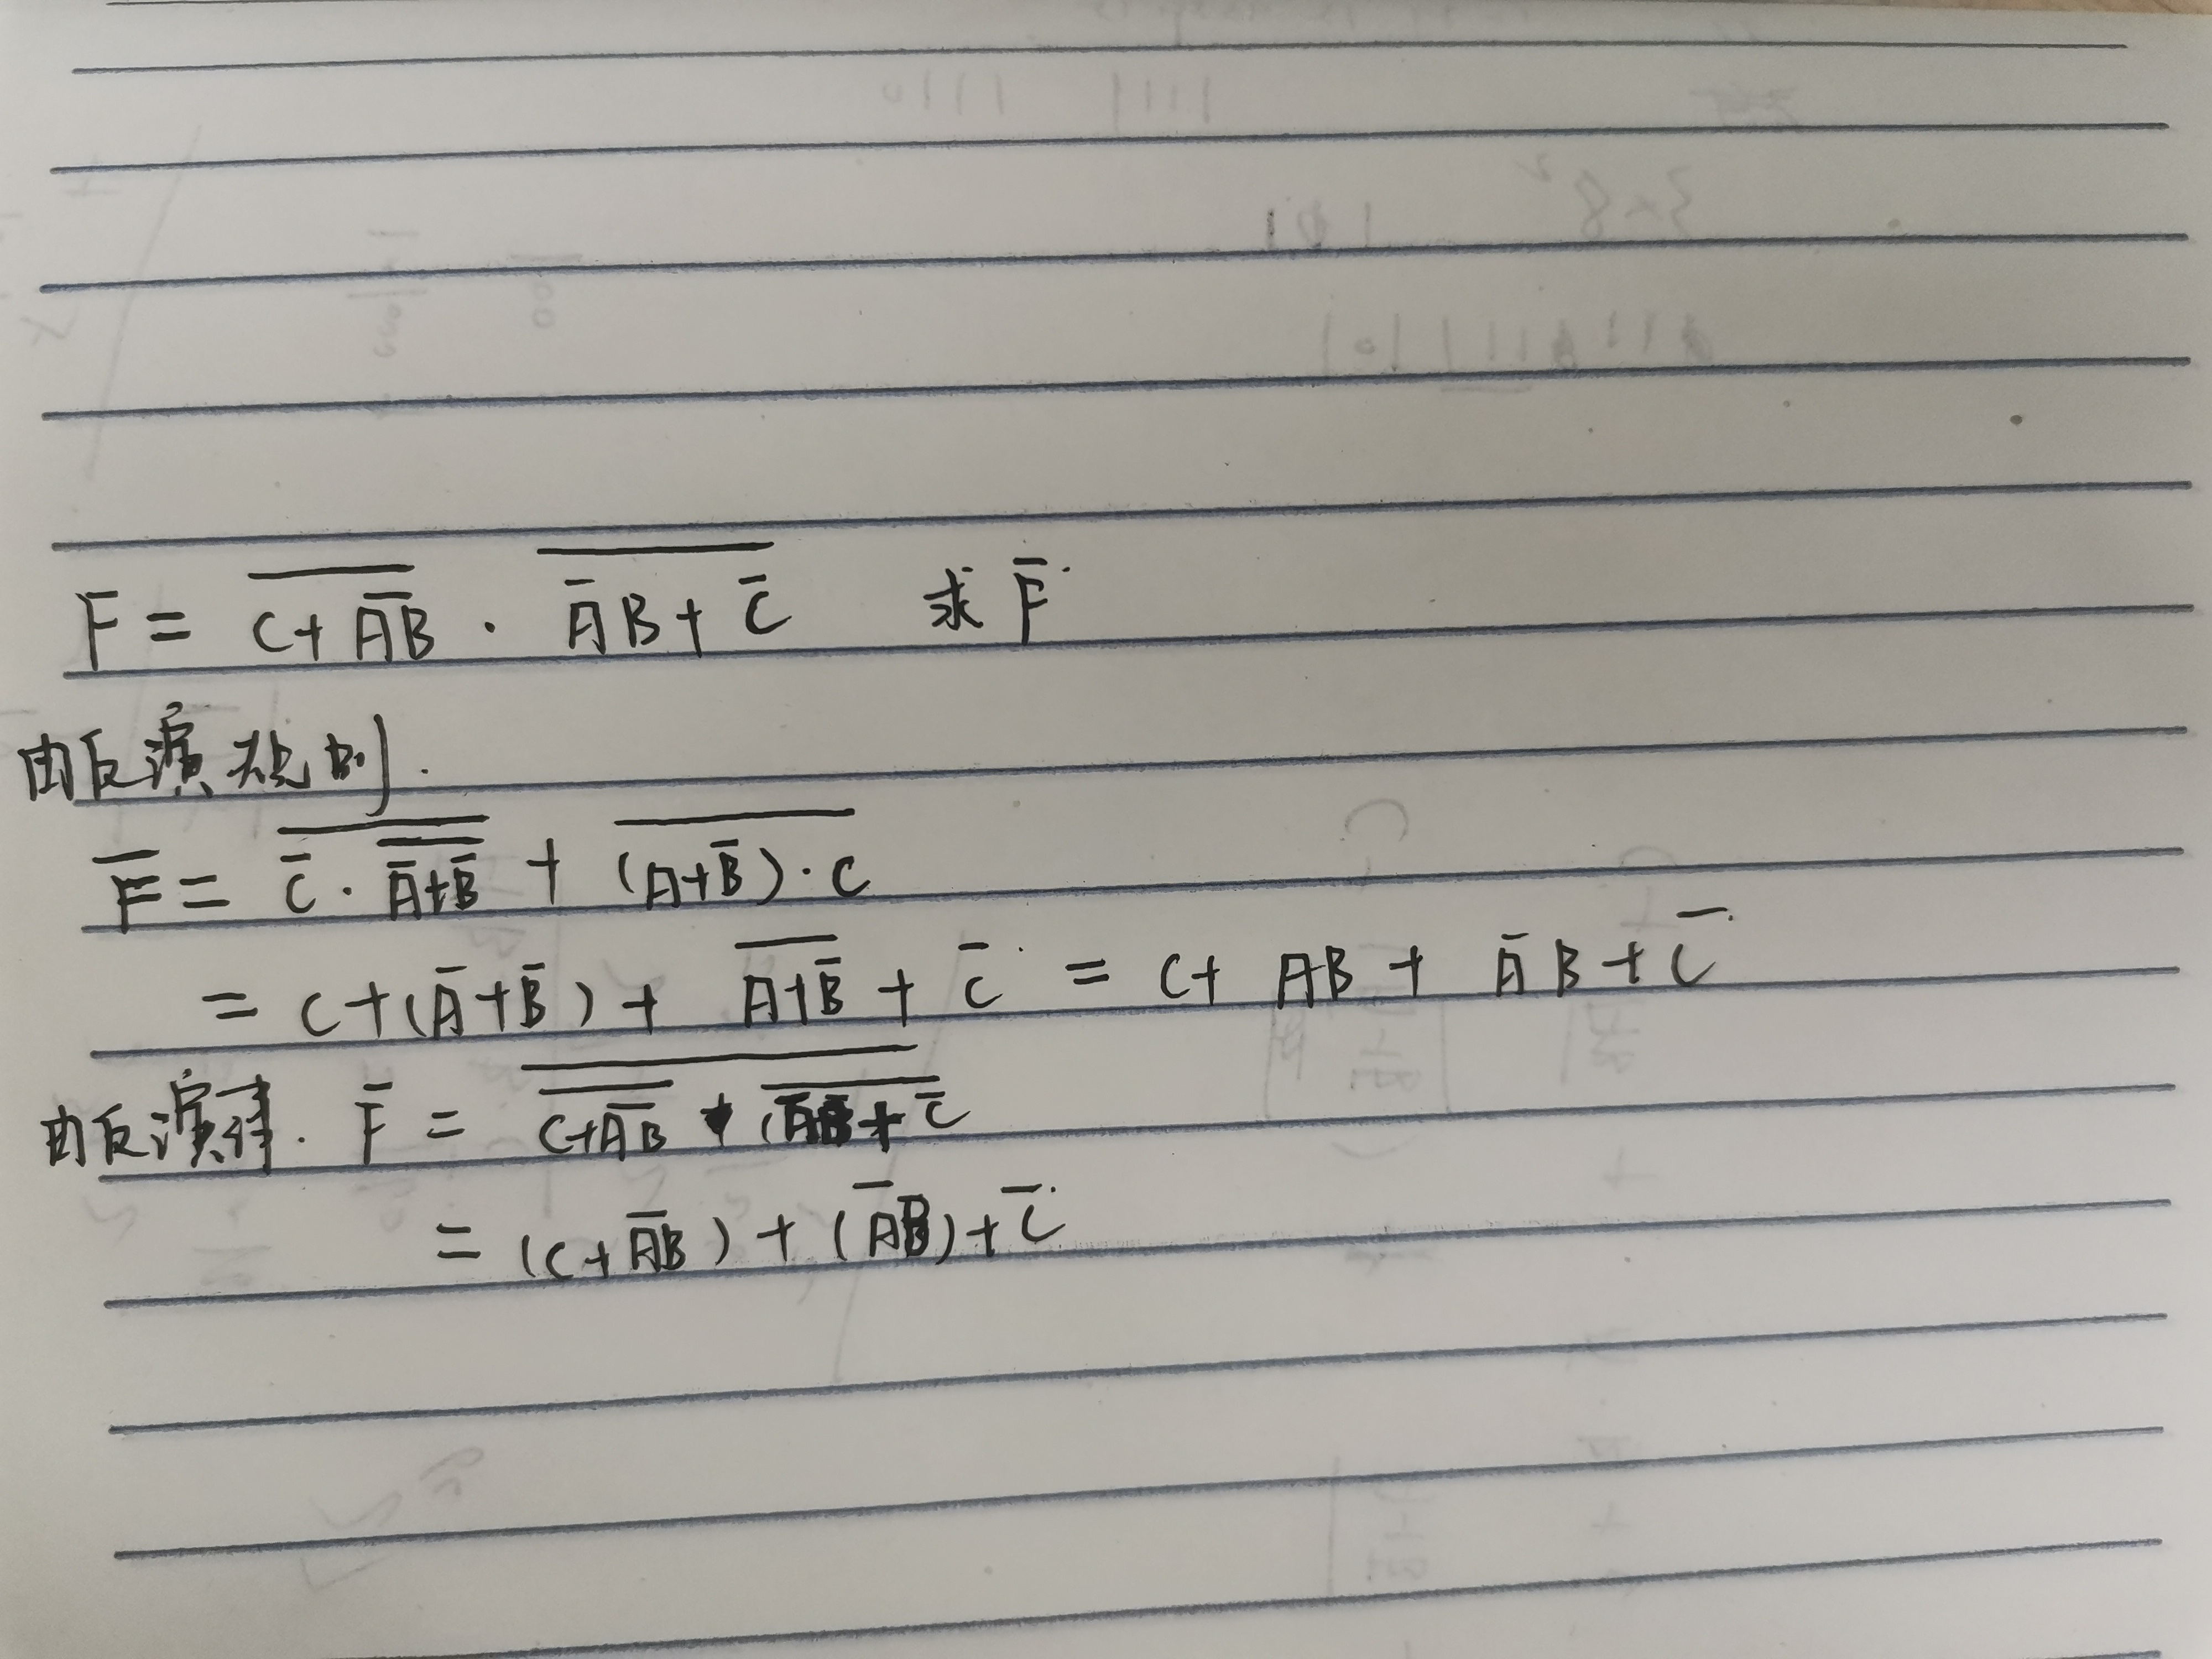 F = \overline{C+\overline{AB}} · \overline{\overline{A}B+\overline{C}} 求 \overline{F}
由反演规则.
\overline{F} = \overline{\overline{C}·\overline{\overline{\overline{A}+\overline{B}}}} + \overline{(A+\overline{B})·C}
= C+(\overline{A}+\overline{B})+ \overline{A+\overline{B}} + \overline{C} = C+ AB + \overline{A}B+\overline{C}
由反演得. \overline{F} = \overline{\overline{C+\overline{AB}} · \overline{\overline{A}B+\overline{C}}}
= (C+\overline{AB})+(\overline{A}B)+\overline{C}